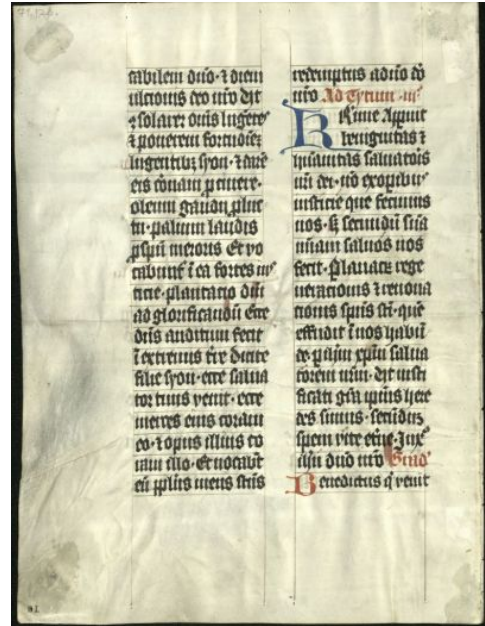 cabilem dño · ⁊ diem
ulcionis deo nr̃o vt
⁊solarer̃ om̃s lugẽtes
⁊ ponerem fortitudiẽ
lugentibꝫ syon · ⁊ darẽ
eis coronam p cinere ·
oleum gaudij p luc
tu · pallium laudis
p spũ meroris Et vo
cabunt̃ ĩ ea fortes ius
ticie · plantacio dñi
ad glorificandũ Ecce
dñs auditum fecit
ĩ extremis tr̃e Dicite
filie syon · ecce salua
tor tuus venit · ecce
merces eius coram
eo · ⁊ opus illius co
ram illo · Et vocabũt
eũ pplũs meus sc̃us
redemptus a dño do
nr̃o Ad Tytum
Kr̃me Apparuit
benignitas ⁊
hũanitas saluatoris
nr̃i dei · nõ ex opibus
iusticie que fecimus
nos · sꝫ secundũ suã
mĩam saluos nos
fecit · P lauacrũ rege
neracionis ⁊ renoua
cionis sp̃us sc̃i · quẽ
effudit ĩ nos habũ
de p ihm xp̃m salua
torem nr̃m · vt iusti
ficati gr̃a ipius here
des simus · secũdũ
spem vite et̃ne · In x̃
ihu dño nr̃o Grad̃
Benedictus q̃ venit